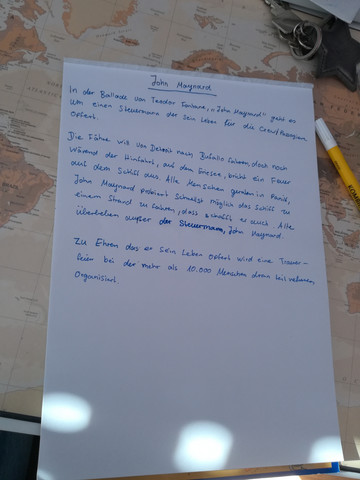 John Maynard
In der Ballade von Teodor Fontane, „John Maynard" geht es
um einen Steuermann der sein Leben für die Crew/Passagiere
Opfert.
Die Fähre will von Detroit nach Bufallo fahren, doch noch
während der Hinfahrt, auf dem Eriesee, bricht ein Feuer
aus dem Schiff aus. Alle Menschen geraten in Panik,
John Maynard probiert Schnellst möglich das Schiff zu
einem Strand zu fahren, dass schafft er auch. Alle
überleben außer der Steuermann, John Maynard.
Zu Ehren das er sein Leben Opfert wird eine Trauer-
feier bei der mehr als 10.000 Menschen dran teil nehmen,
Organisiert.